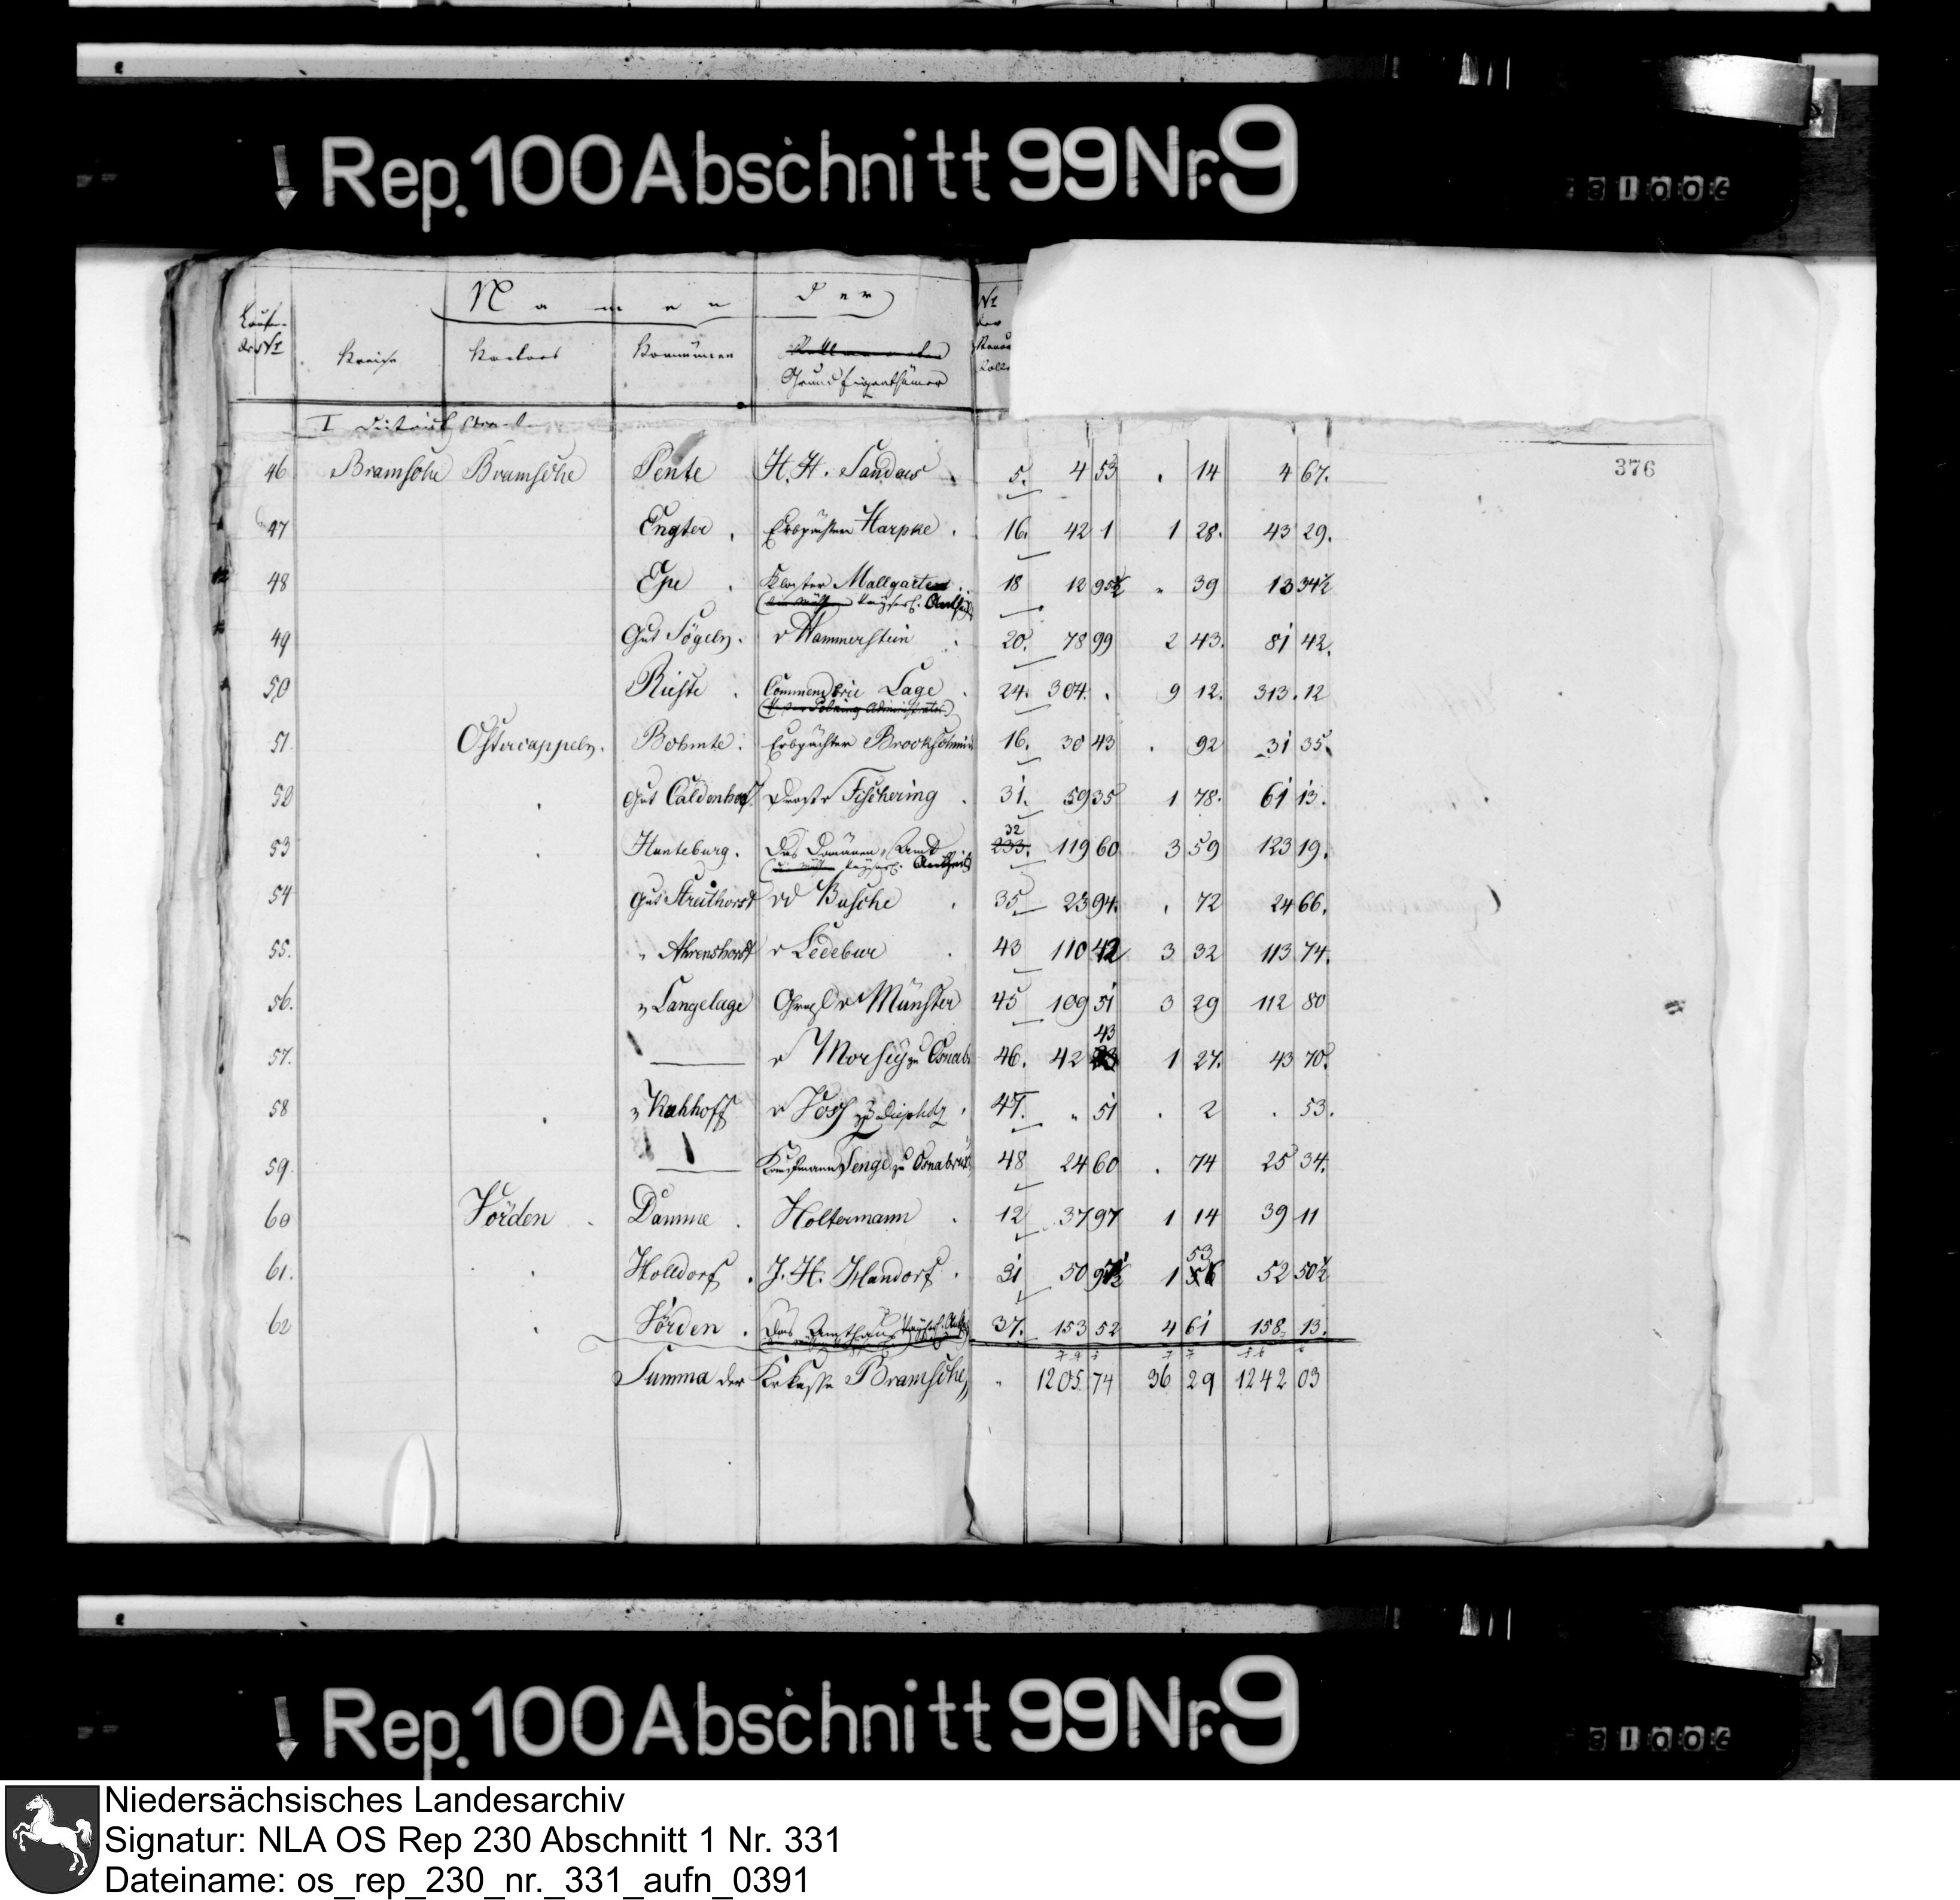 Rep. 100 Abschnitt 99 Nr. 9
81006
Laufen-
de Nr
Namen der
Kreise Kantons Kommunen Grund Eigenthümer
Nr
der
I District
376
46 Bramsche Bramsche Pente H. H. Sandow 5. 4 53 . 14 4 67.
47 Engter . Erbpächter Harpke . 16. 42 1 1 28. 43 29.
48 Epe . Kloster Mallgarten 18 12 95½ " 39 13 34½
Kayserl. Antheil
49 Gut Sögeln. v Hammerstein 20. 78 99 2 43. 81 42.
50 Rieste . Commenderie Lage . 24. 304. . 9 12. 313. 12
Administrator
51 Ostercappeln. Bohmte. Erbpächter Brockschmidt 16. 30 43 . 92 31 35.
52 Gut Caldenhof. Fischering . 31. 59 35 1 78. 61 13.
53 Hunteburg. Das Domänen Amt 32 233. 119 60 3 59 123 19.
Kayserl. Antheils
54 Gut Streithorst vd Busche . 35 23 94. . 72 24 66.
55. " Ahrenshorst v Ledebur . 43 110 42 3 32 113 74.
56. " Langelage Graf v Münster 45 109 51 3 29 112 80
57. v Morsey zu Osnab. 46. 42 43 1 27. 43 70.
58 " Kuhhoff v Voss zu Diepholz . 47. " 51 . 2 . 53.
59. Kaufmann Tenge zu Osnabrück 48 24 60 . 74 25 34.
60 Vörden . Damme . Holtermann . 12 37 97 1 14 39 11
61. Holldorf . J. H. Handorf . 31 50 97½ 1 53 56 52 50½
62 Vörden . Das Amthaus Kayserl. 37. 153 52 4 61 158 13.
Summa der Krkasse Bramsche " 1205 74 36 29 1242 03
Rep. 100 Abschnitt 99 Nr. 9
81006
Niedersächsisches Landesarchiv
Signatur: NLA OS Rep 230 Abschnitt 1 Nr. 331
Dateiname: os_rep_230_nr._331_aufn_0391